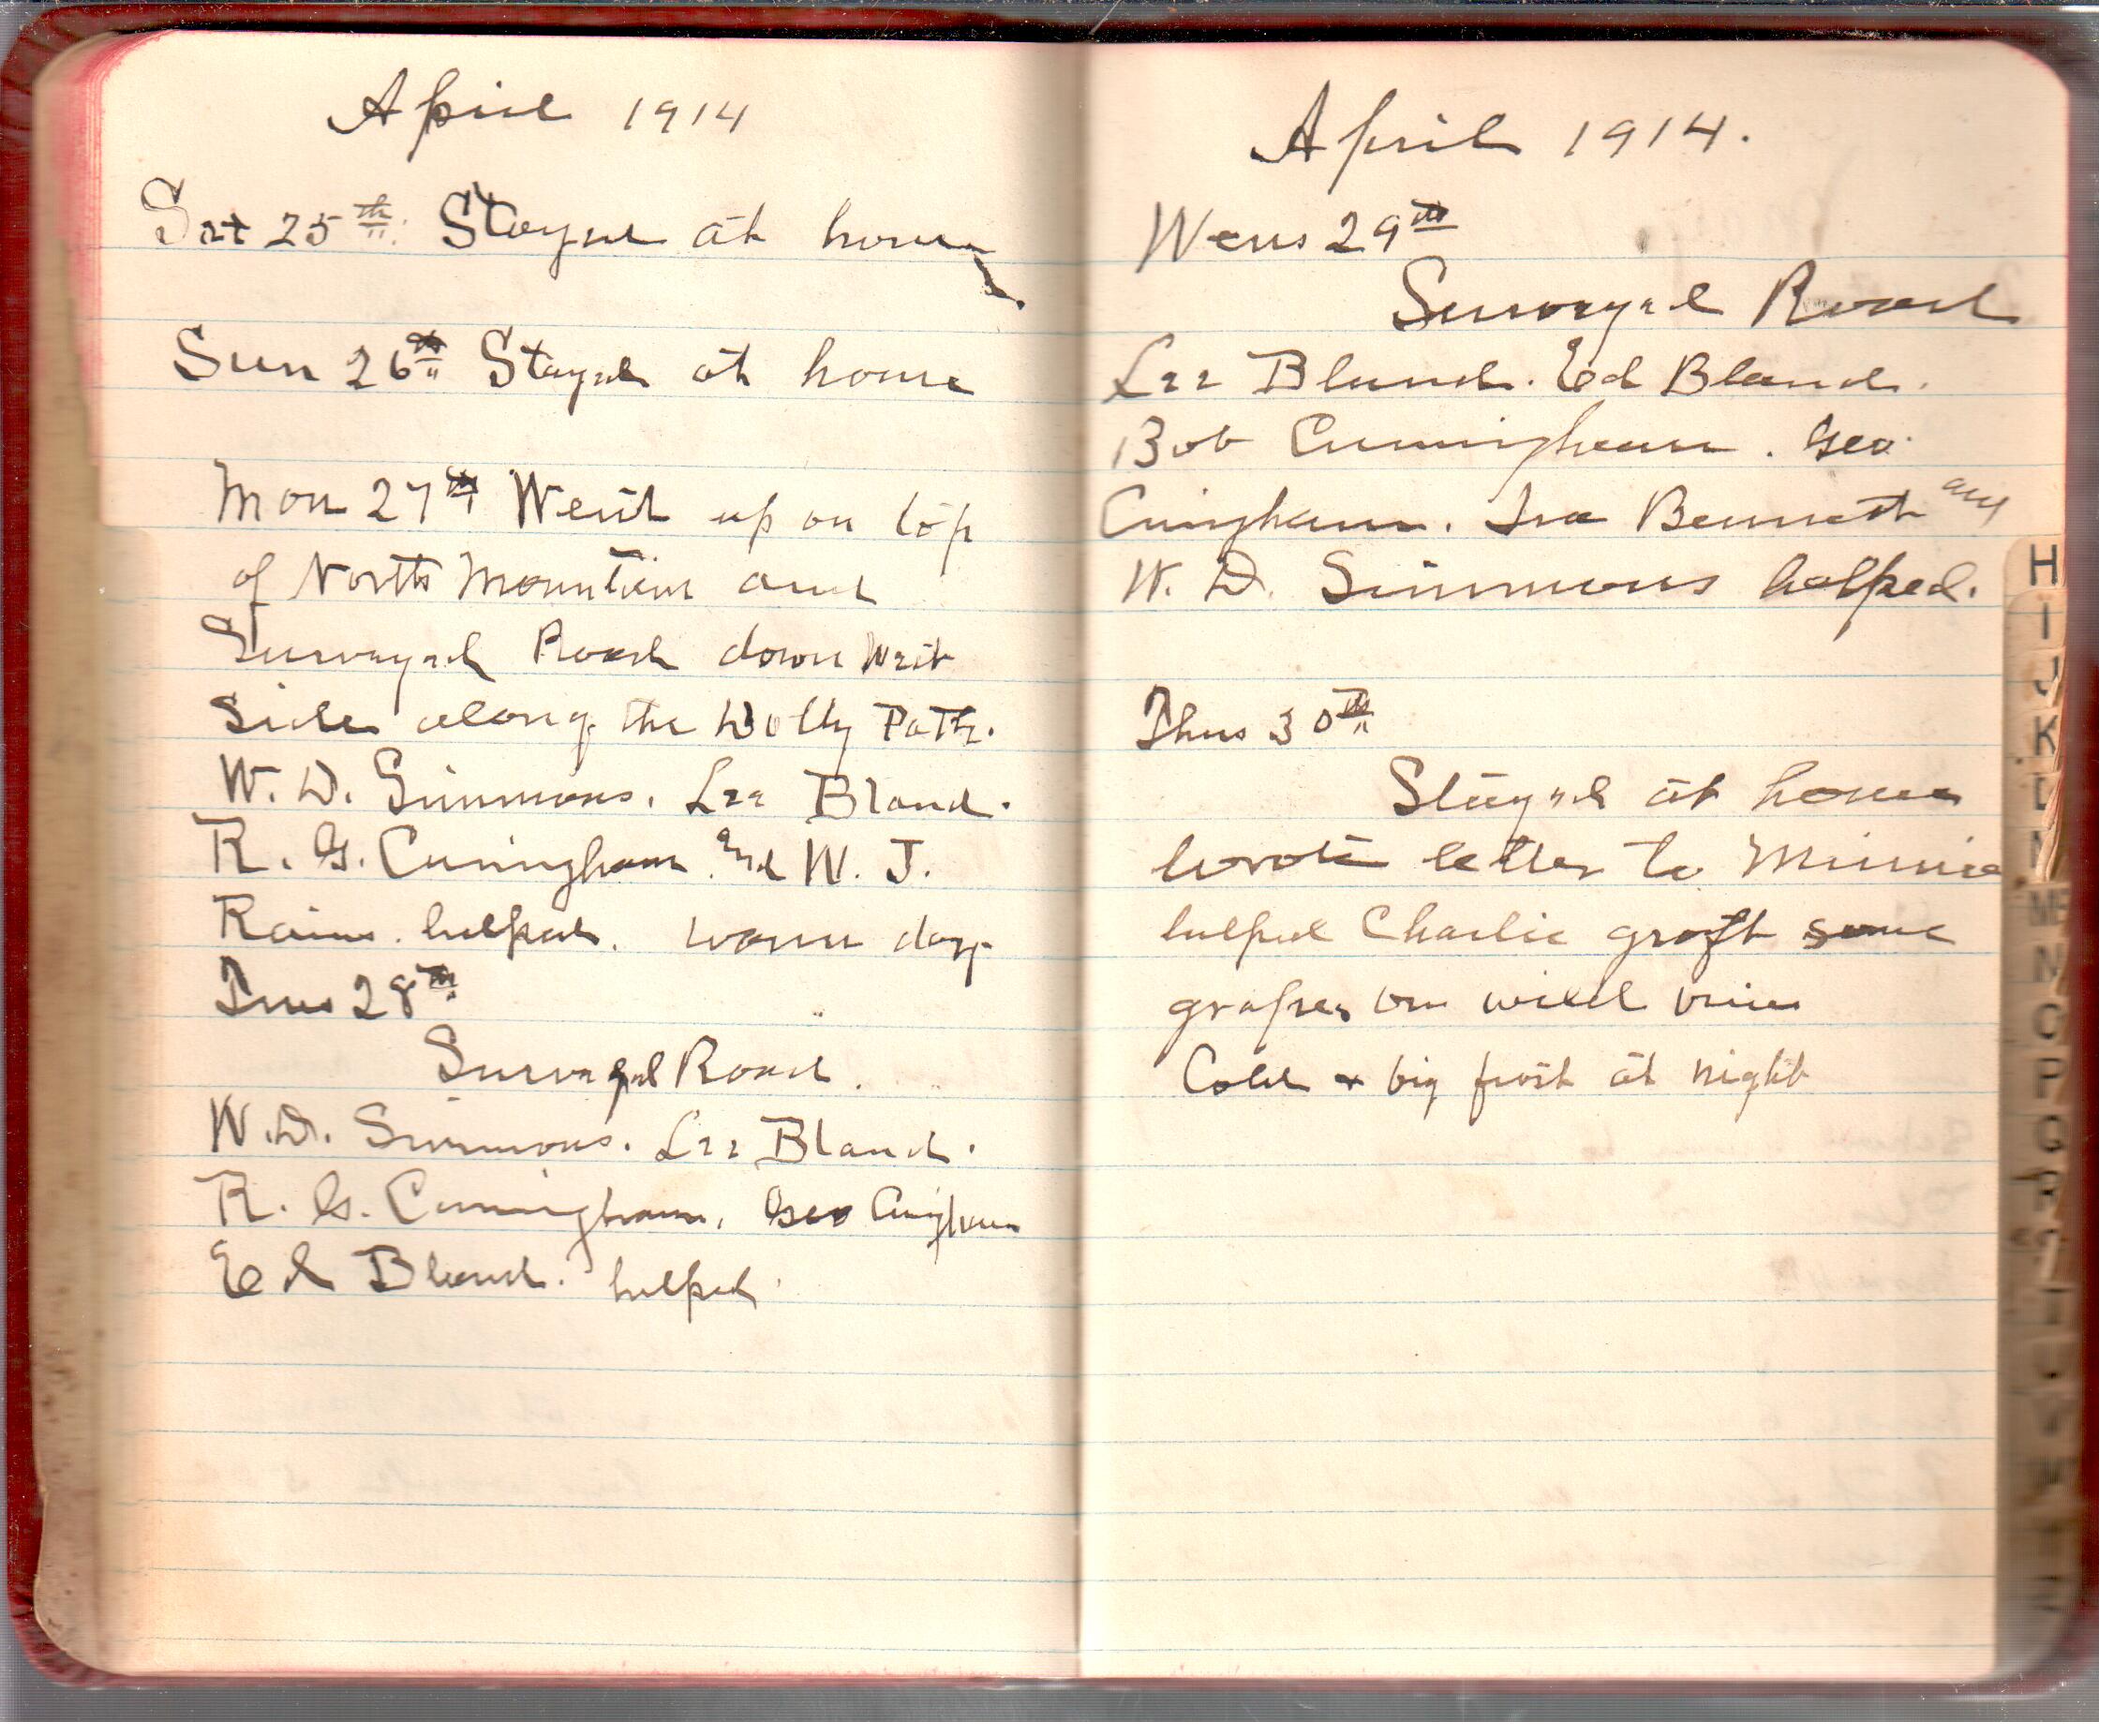 April 1914
Sat 25th. Stayed at home
Sun 26th Stayed at home
Mon 27th Went up on top
of North Mountain and
Survayed Road down West
Side along the Dolly Path.
W. D. Simmons. Lee Bland.
R. G. Cuningham and W. J.
Rains. helped. warm day
Tues 28th
Survayed Road.
W. D. Simmons. Lee Bland.
R. G. Cuningham, Geo Cuingham
Ed Bland. helped.
April 1914.
Wens 29th
Survayed Road
Lee Bland. Ed Bland.
Bob Cunningham. Geo.
Cuingham. Ira Bennett and
W. D. Simmons helped.
Thus 30th
Stayed at home
wrote letter to Minnie
helped Charlie graft some
grapes on wild vine
Cold & big frost at night
H
I
J
K
L
M
N
O
P
Q
R
T
U